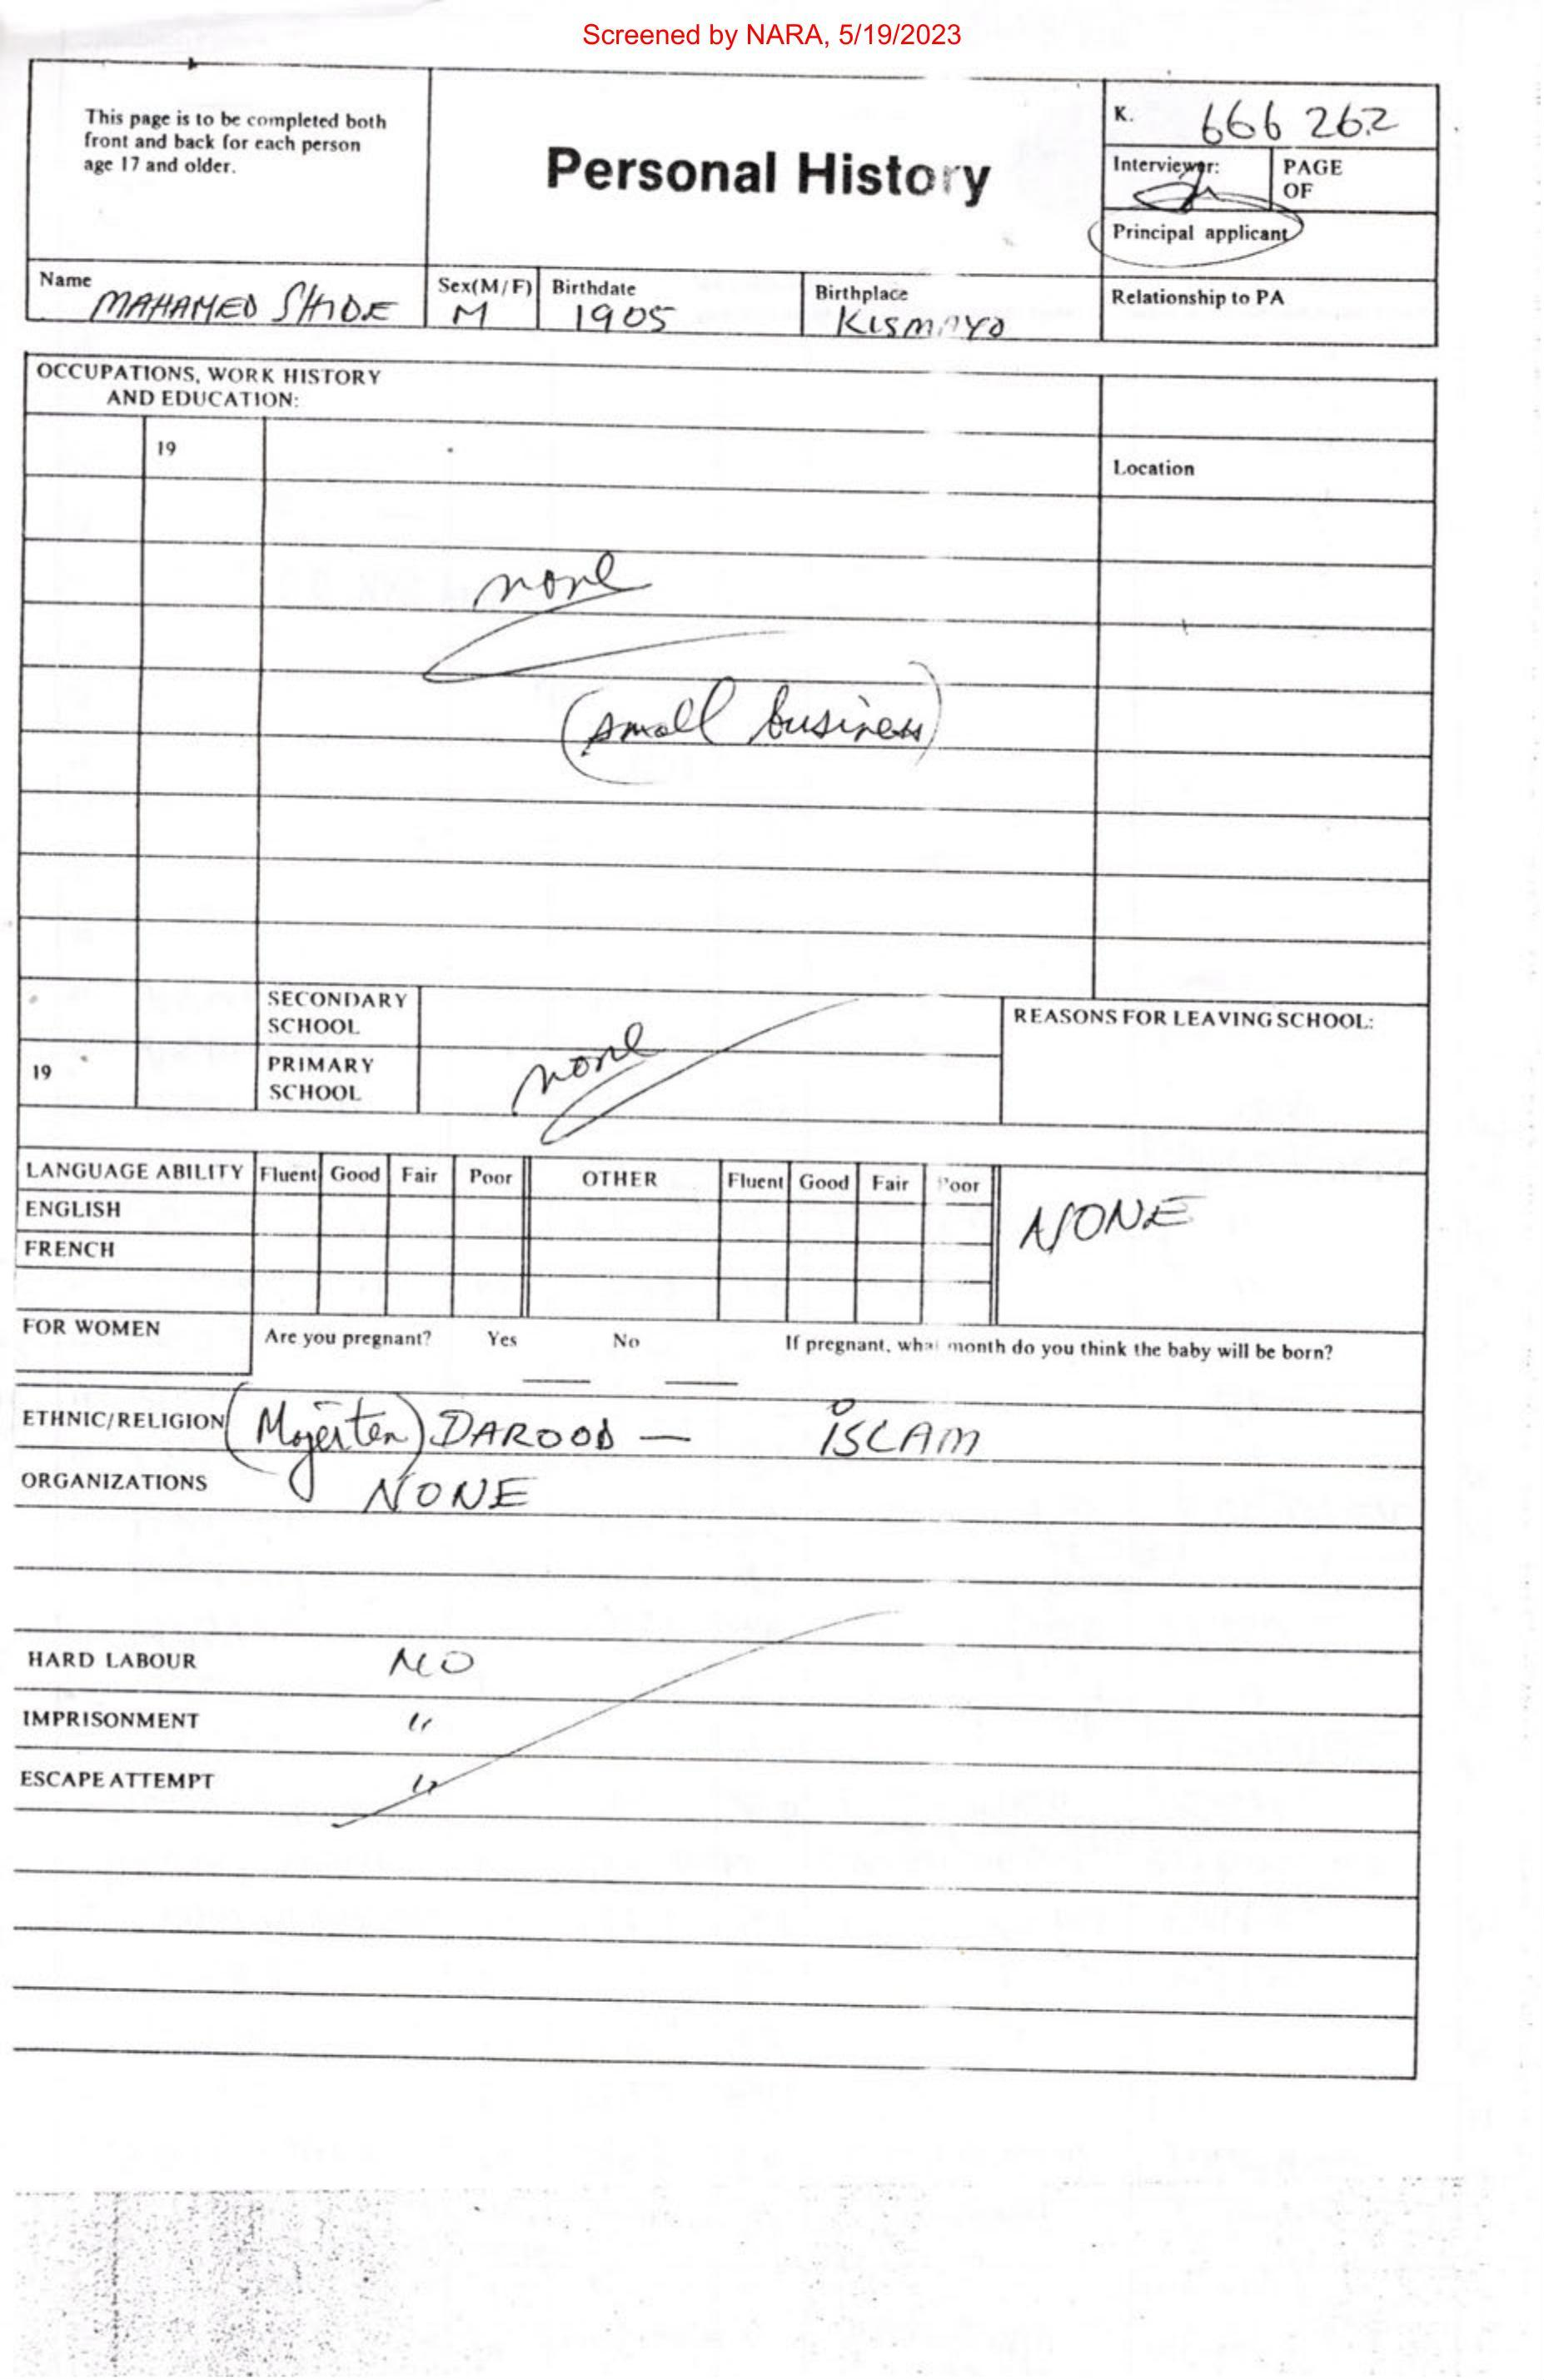 Screened by NARA, 5/19/2023
This page is to be completed both
front and back for each person
age 17 and older.
Personal History
K. 666 262
Interviewer:
PAGE
OF
Principal applicant
Name MAHAMED SHIDE
Sex(M/F) M
Birthdate 1905
Birthplace KISMAYO
Relationship to PA
OCCUPATIONS, WORK HISTORY
AND EDUCATION:
19
Location
none
(small business)
SECONDARY
SCHOOL
REASONS FOR LEAVING SCHOOL:
19
PRIMARY
SCHOOL
none
LANGUAGE ABILITY Fluent Good Fair Poor OTHER Fluent Good Fair Poor
ENGLISH
NONE
FRENCH
FOR WOMEN Are you pregnant? Yes No If pregnant, what month do you think the baby will be born?
ETHNIC/RELIGION (Majerten) DAROOD — ISLAM
ORGANIZATIONS NONE
HARD LABOUR NO
IMPRISONMENT "
ESCAPE ATTEMPT "